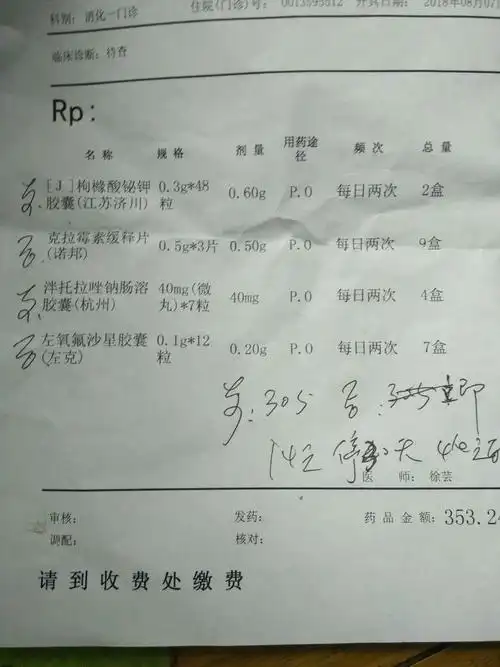 科别: 消化一门诊 住院(门诊)号: 0013595512 开具日期: 2018年08月07
临床诊断: 待查
Rp:
名称 规格 剂量 用药途径 频次 总量
前 [J]枸橼酸铋钾胶囊(江苏济川) 0.3g*48粒 0.60g P.O 每日两次 2盒
后 克拉霉素缓释片(诺邦) 0.5g*3片 0.50g P.O 每日两次 9盒
前 泮托拉唑钠肠溶胶囊(杭州) 40mg(微丸)*7粒 40mg P.O 每日两次 4盒
后 左氧氟沙星胶囊(左克) 0.1g*12粒 0.20g P.O 每日两次 7盒
前: 30分 后: 即
14天 停
医 师: 徐芸
审核: 发药: 药品金额: 353.24
调配: 核对:
请到收费处缴费